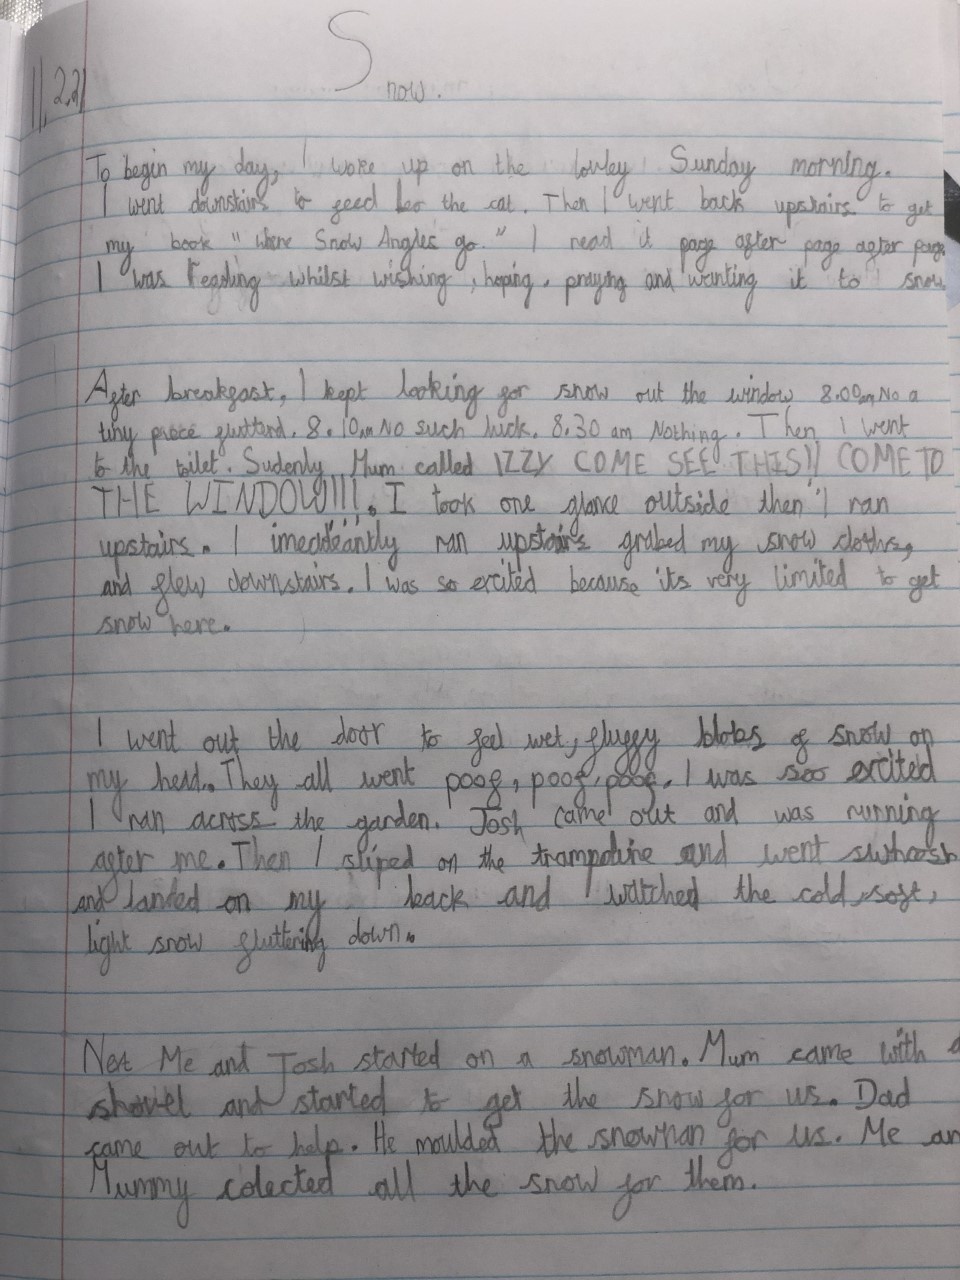 11.2.21
Snow.
To begin my day, I woke up on the lovley Sunday morning.
I went downstairs to feed Leo the cat. Then I went back upstairs to get
my book "Where Snow Angles go." I read it page after page after page
I was reading whilst wishing, hoping, praying and wanting it to snow.
After breakfast, I kept looking for snow out the window 8.00am No a
tiny piece fluttard. 8.10am No such luck. 8.30 am Nothing. Then I went
to the toilet. Sudenly Mum called IZZY COME SEE THIS!! COME TO
THE WINDOW!!!. I took one glance outside then I ran
upstairs. I imeddeantly ran upstairs grabed my snow cloths,
and flew downstairs. I was so excited because its very limited to get
snow here.
I went out the door to feel wet, fluffy blobs of snow on
my head. They all went poof, poof, poof. I was soo excited
I ran across the garden. Josh came out and was running
after me. Then I sliped on the trampoline and went swhoosh
and landed on my back and I watched the cold, soft,
light snow fluttering down.
Next Me and Josh started on a snowman. Mum came with a
shovel and started to get the snow for us. Dad
came out to help. He moulded the snowman for us. Me an
Mummy colected all the snow for them.